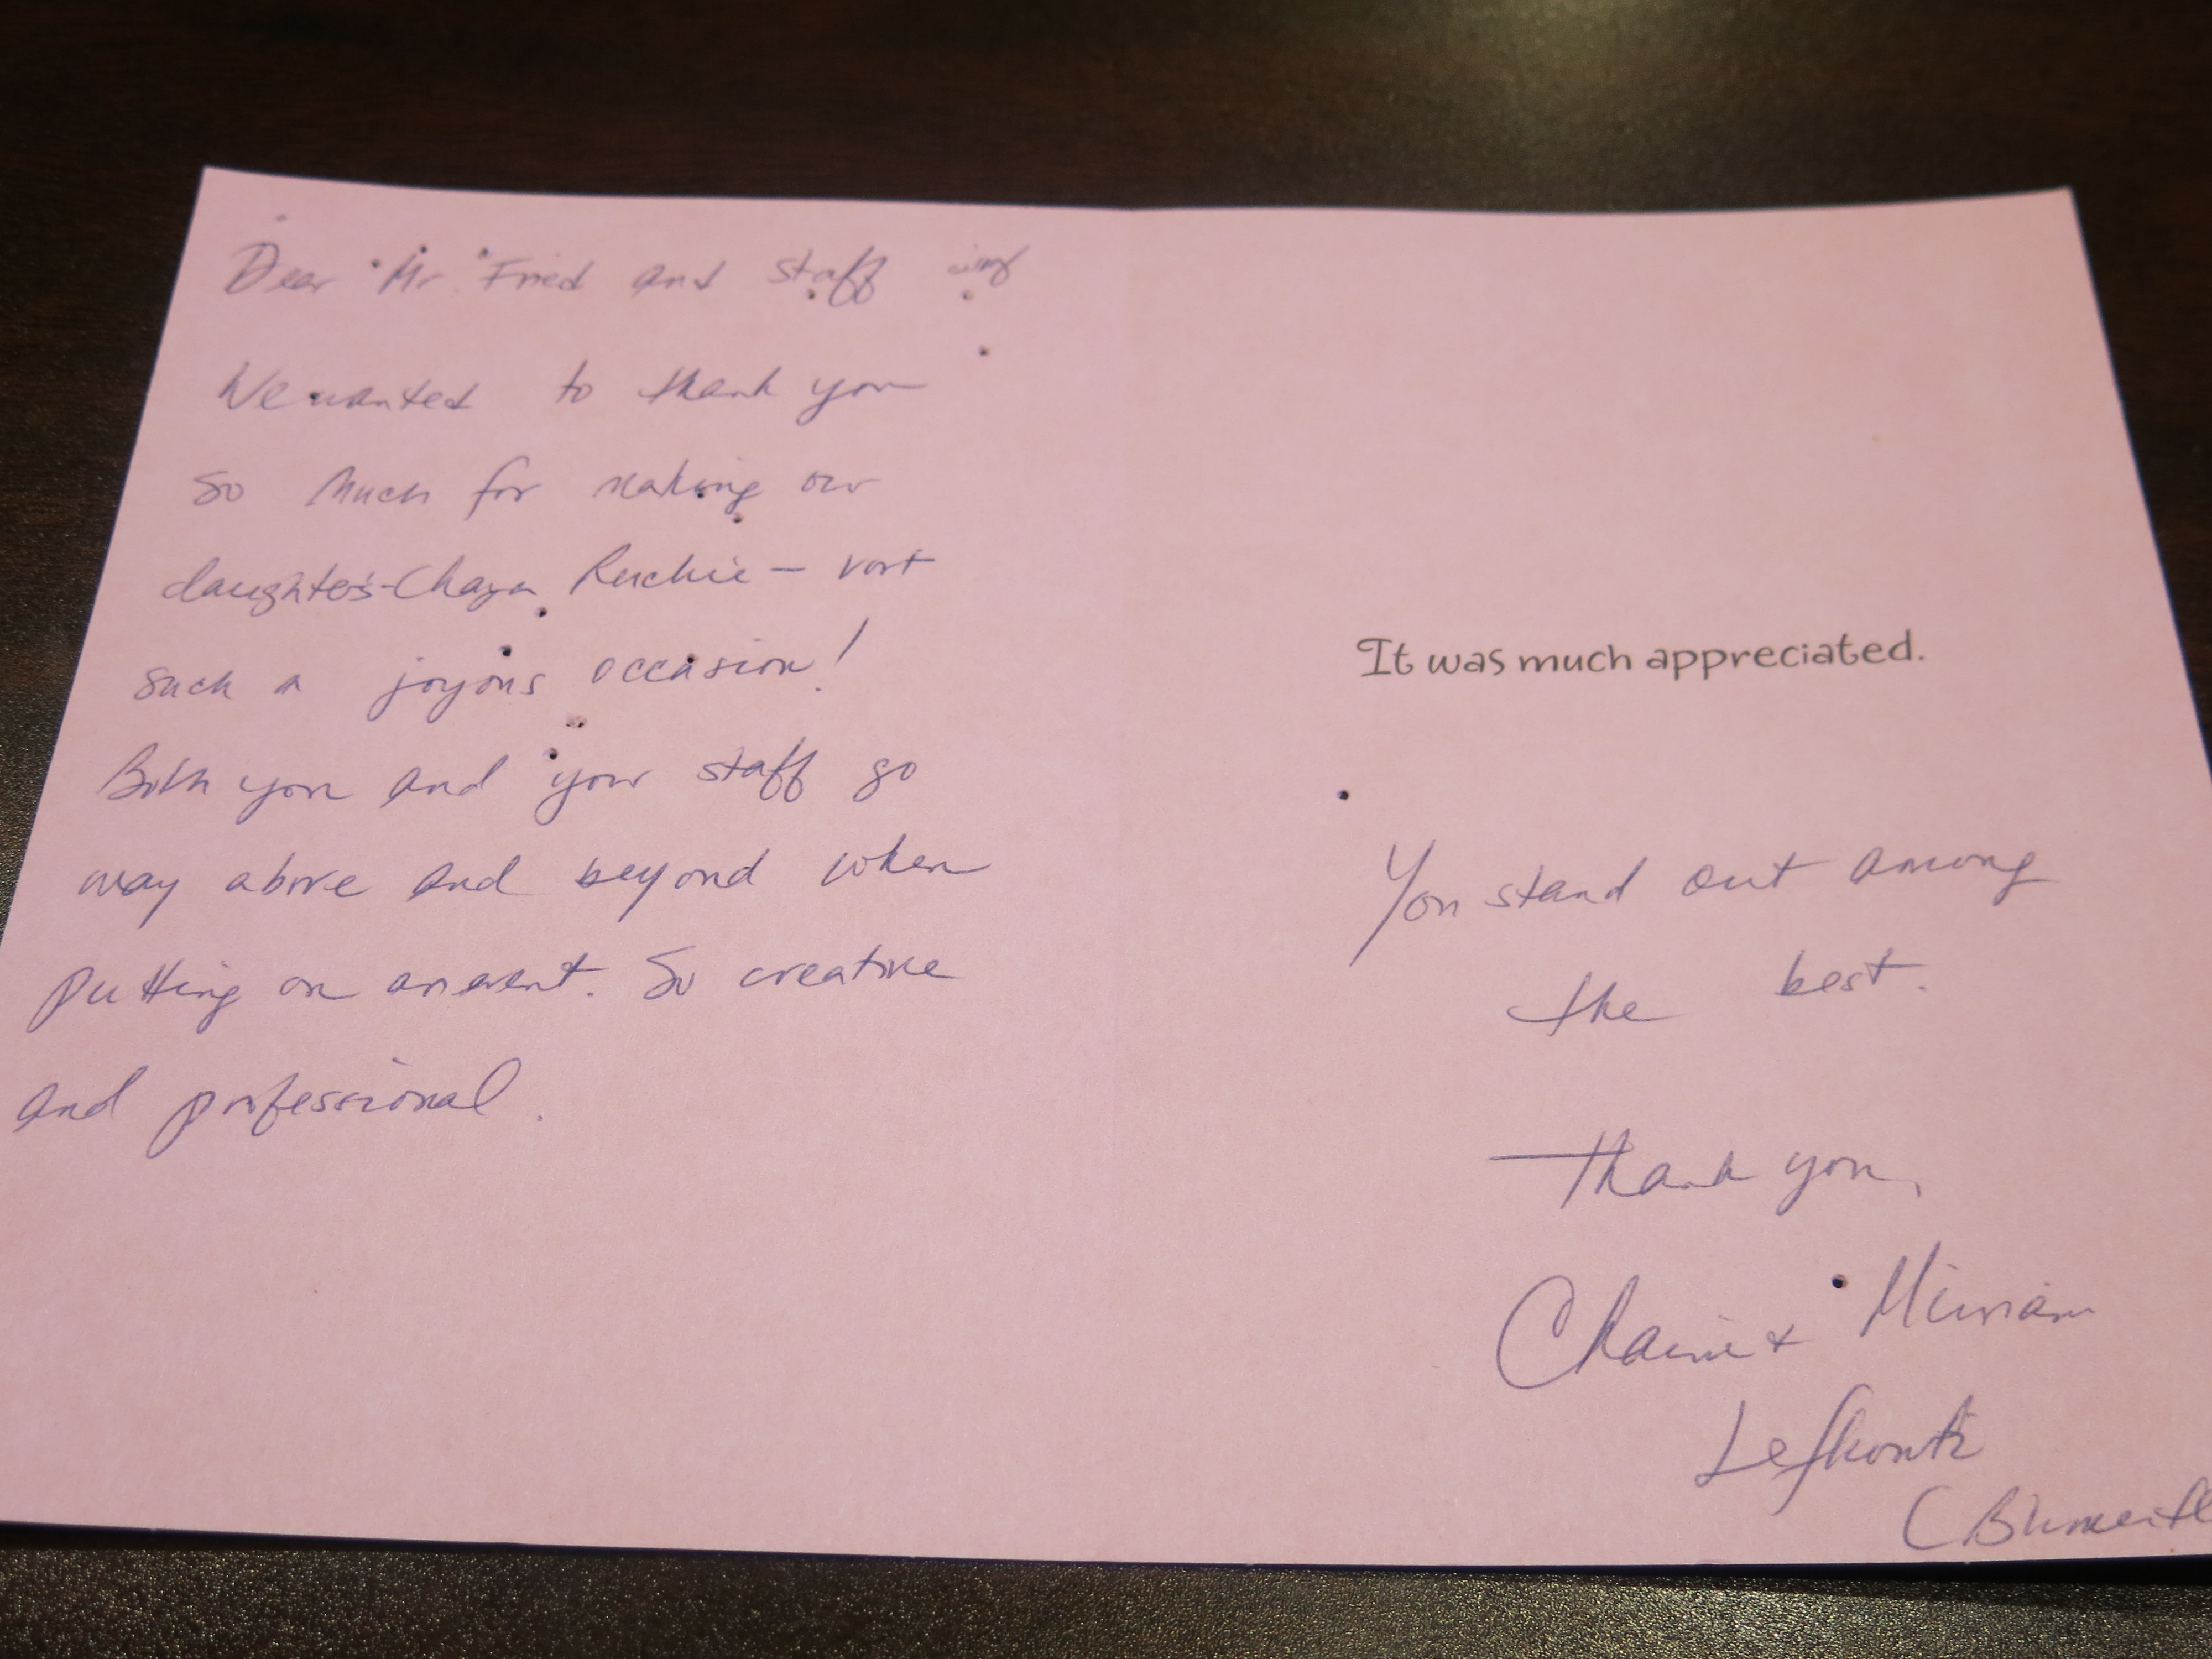 Dear Mr. Fried and staff
We wanted to thank you
so much for making our
daughter's - Chaya Ruchie - vort
such a joyous occasion!
Both you and your staff go
way above and beyond when
putting on an event. So creative
and professional.
It was much appreciated.
You stand out among
the best.
Thank you,
Chaim & Miriam